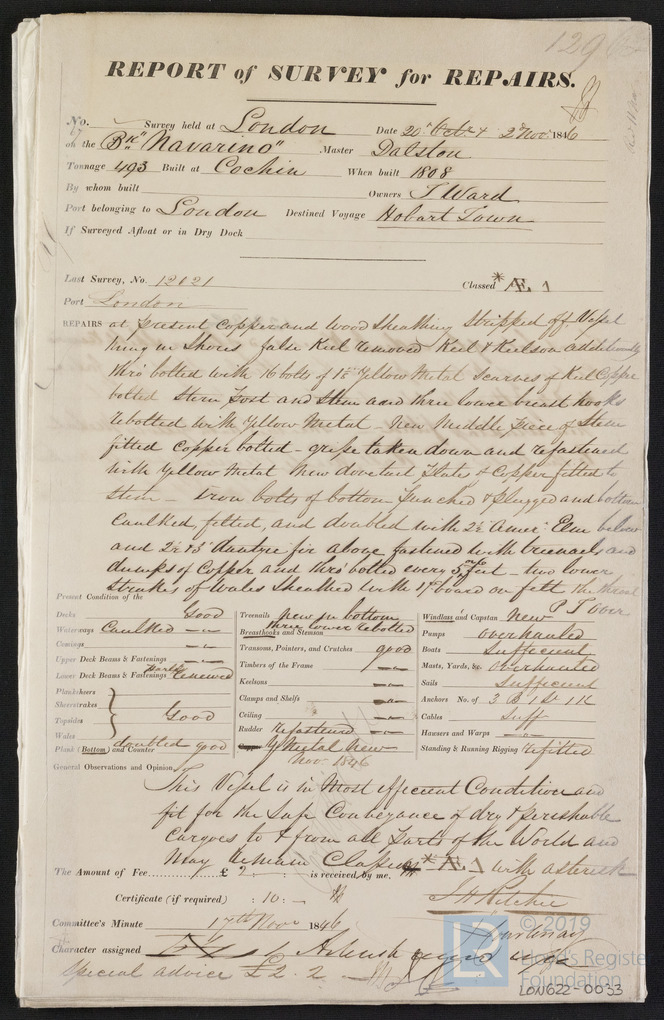 REPORT of SURVEY for REPAIRS.
No. Survey held at London Date 20th Octr & 2d Novr 1846
on the Bk "Navarino" Master Dalston
Tonnage 493 Built at Cochin When built 1808
By whom built Owners T Ward
Port belonging to London Destined Voyage Hobart Town
If Surveyed Afloat or in Dry Dock
Last Survey, No. 12021 Classed * Æ 1
Port London
REPAIRS at present Copper and wood Sheathing Stripped off Vessel
hung in Shores false Keel removed Keel & Keelson additionally
thro' bolted with 16 bolts of Yellow Metal scarves of Keel Copper
bolted Stern Post and Stem and three lower breast hooks
rebolted with Yellow Metal - New Middle piece of Stem
fitted Copper bolted - gripe taken down and refastened
with Yellow Metal New dovetail Plates of Copper fitted to
Stem - Iron bolts of bottom punched & plugged and bottom
Caulked, felted, and doubled with 2½ Amer. Elm below
and 2½ & 3 dantzic fir above fastened with treenails and
dumps of Copper and thro' bolted every 5 feet - two lower
Strakes of Wales Sheathed with board on felt
P T over
Present Condition of the
Decks Good
Waterways Caulked
Comings
Upper Deck Beams & Fastenings
Lower Deck Beams & Fastenings partly renewed
Planksheers
Sheerstrakes
Topsides Good
Wales
Plank (Bottom) and Counter doubled good
Treenails new in bottom
three lower rebolted
Breasthooks and Stemson
Transoms, Pointers, and Crutches good
Timbers of the Frame
Keelsons
Clamps and Shelfs
Ceiling
Rudder Refastened
Copper Y Metal New
Nov 1846
Windlass and Capstan New
Pumps overhauled
Boats Sufficient
Masts, Yards, &c. overhauled
Sails Sufficient
Anchors No. of 3 B 1 St 1 K
Cables Suff
Hawsers and Warps
Standing & Running Rigging Refitted
General Observations and Opinion,
This Vessel is in Most efficient Condition and
fit for the Safe Conveyance of dry & perishable
Cargoes to & from all parts of the World and
May remain Classed * Æ 1 with asterisk
The Amount of Fee £ 2 is received by me,
Certificate (if required) : 10 : -
Committee's Minute 17th Novr 1846
Character assigned
Special advice £2.2
© 2019
Lloyd's Register
Foundation
LON622-0033